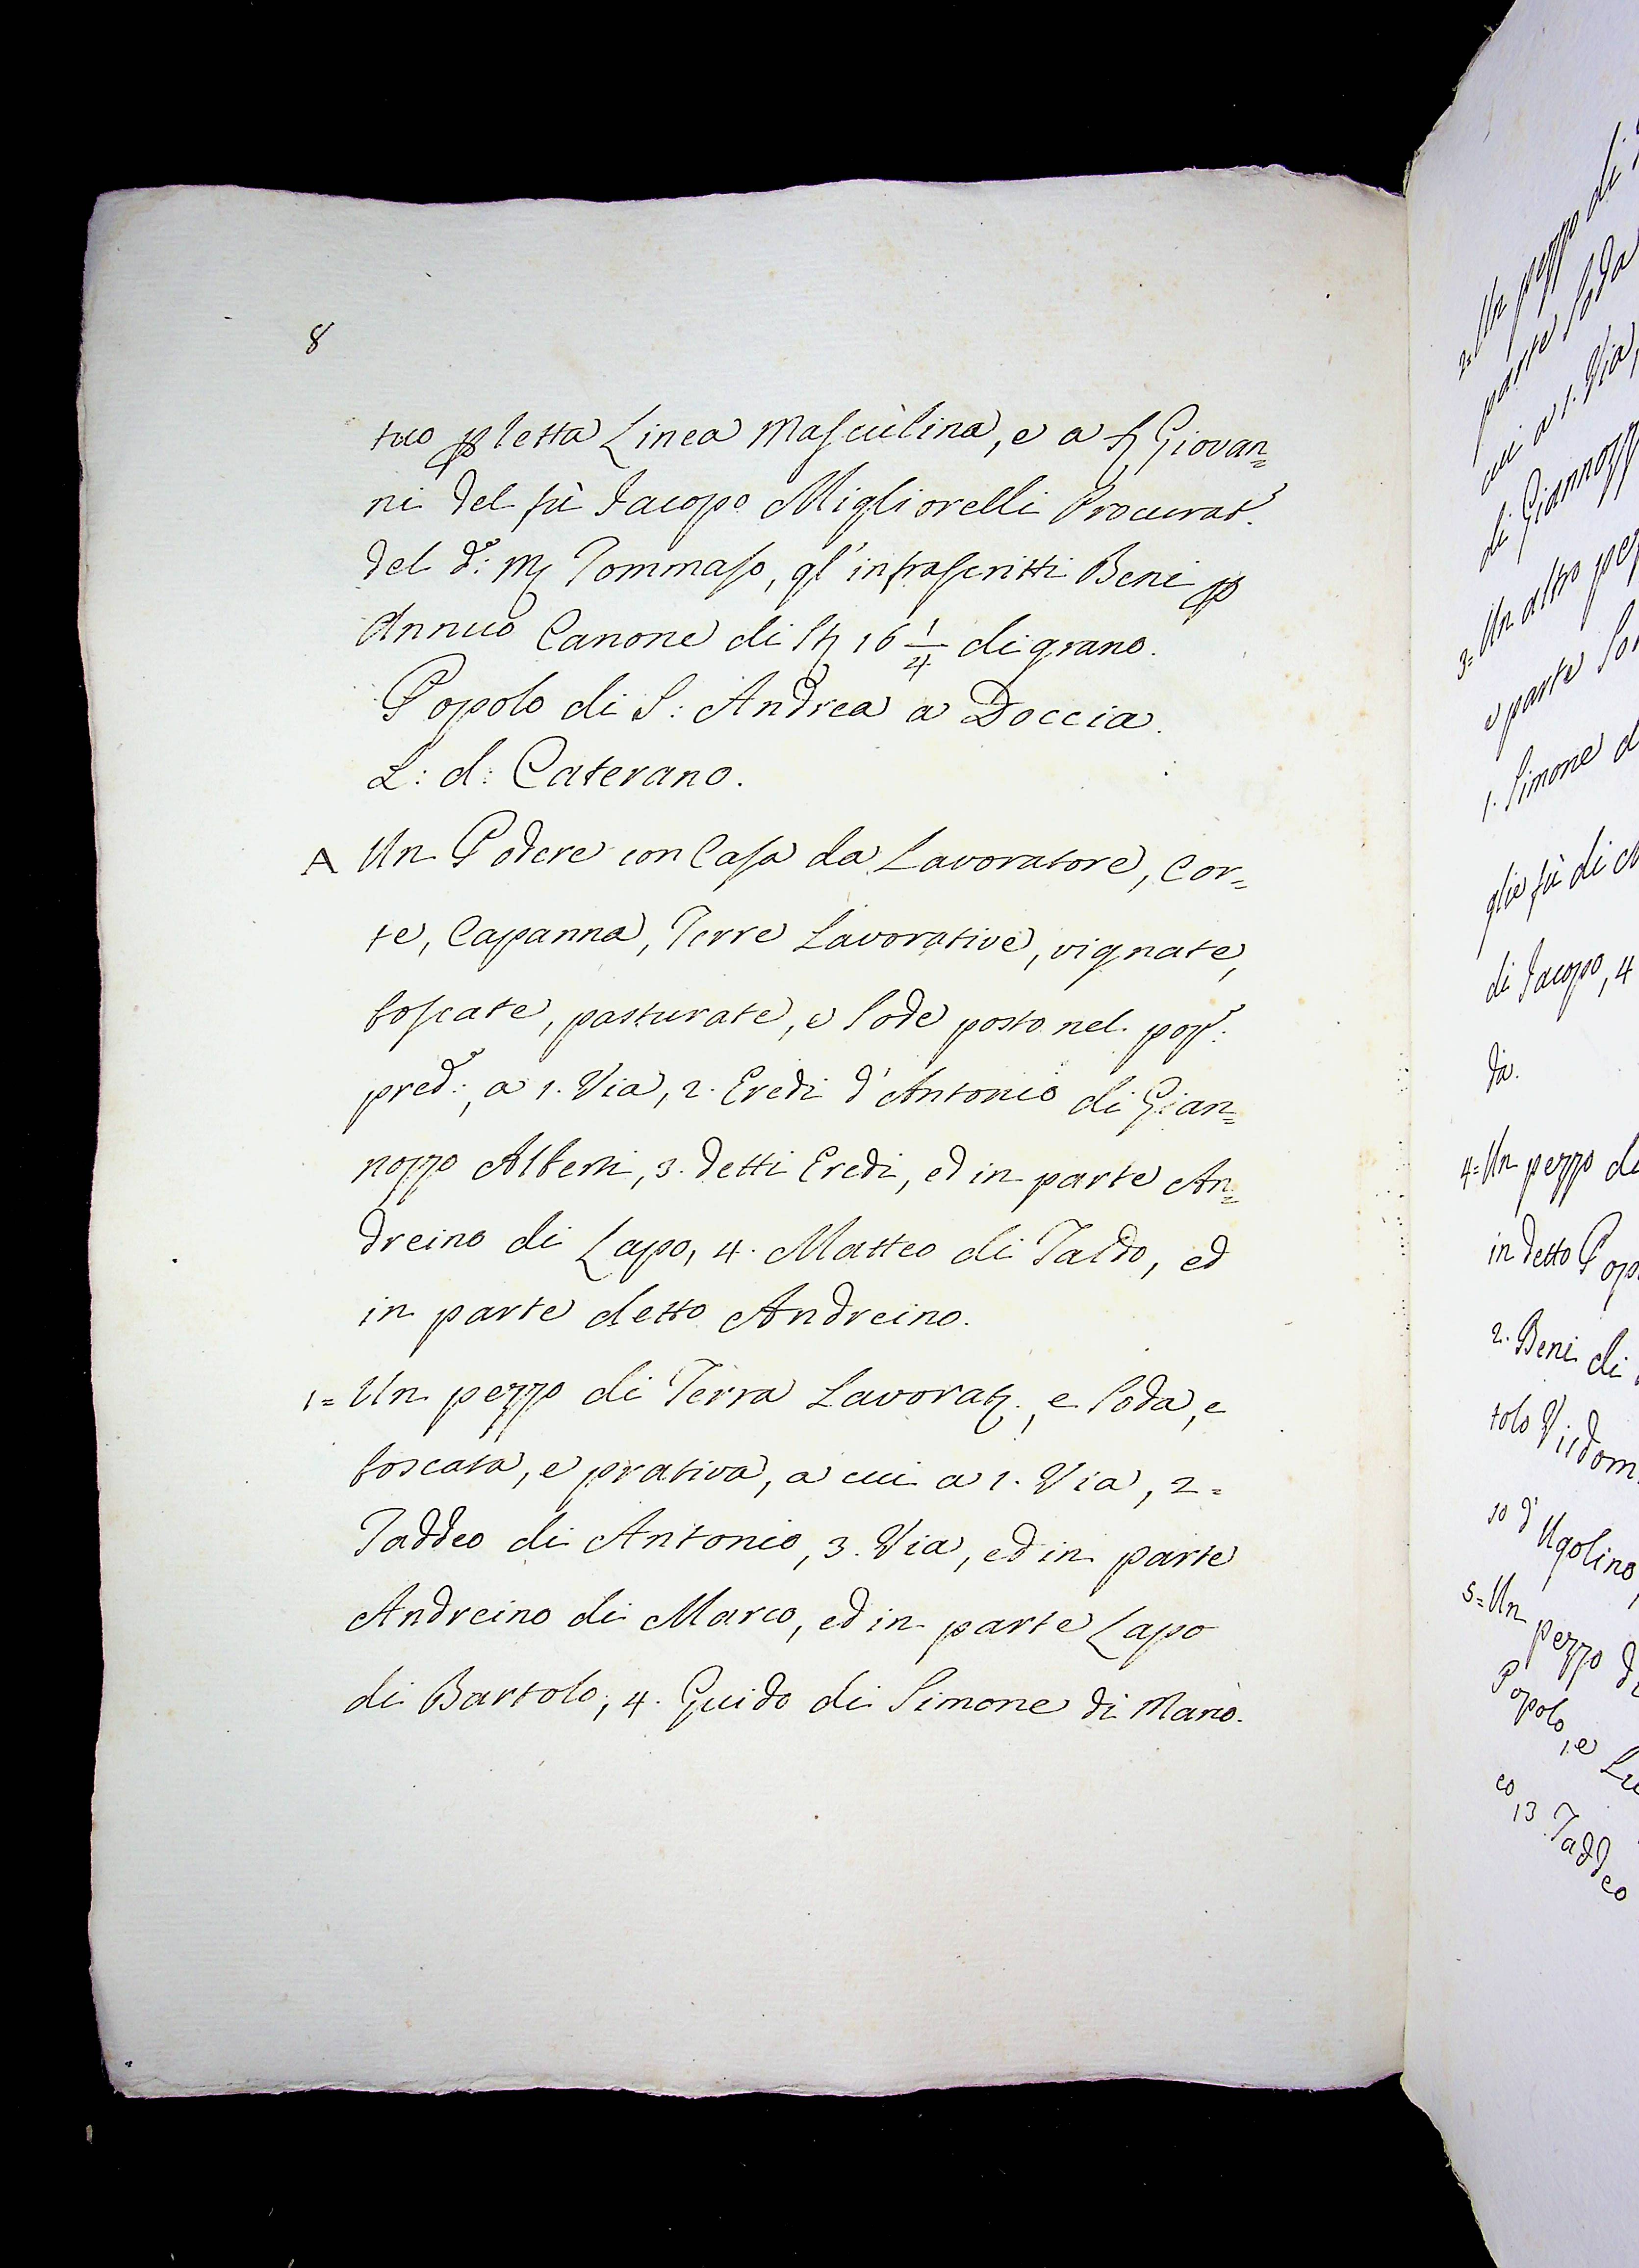 8
tuo p retta Linea Masculina, e a S Giovan=
ni del fù Jacopo Migliorelli Procurat.
del d.º: M Tommaso, gl' infrascritti Beni p
Annuo Canone di St 16 1/4 di grano.
Popolo di S: Andrea a Doccia.
L: d: Caterano.
A Un Podere con Casa da Lavoratore, Cor=
te, Capanna, Terre Lavorative, vignate,
boscate, pasturate, e sode posto nel pop.º:
pred.º:, a 1. Via, 2. Eredi d'Antonio di Gian=
nozzo Alberti, 3. detti Eredi, ed in parte An=
dreino di Lapo, 4. Matteo di Taldo, ed
in parte detto Andreino.
1= Un pezzo di Terra Lavorat., e soda, e
boscata, e prativa, a cui a 1. Via, 2=
Taddeo di Antonio, 3. Via, ed in parte
Andreino di Marco, ed in parte Lapo
di Bartolo, 4. Guido di Simone di Mario.
2= Un pezzo di
parte soda
cui a 1. Via,
di Giannozz
3= Un altro pez
e parte So
1. Simone d
glie fù di
di Jacopo, 4
da.
4= Un pezzo di
in detto Pop
2. Beni di
tolo Visdom
so d'Ugolino,
5= Un pezzo di
Popolo, e Lu
co, 13 Taddeo